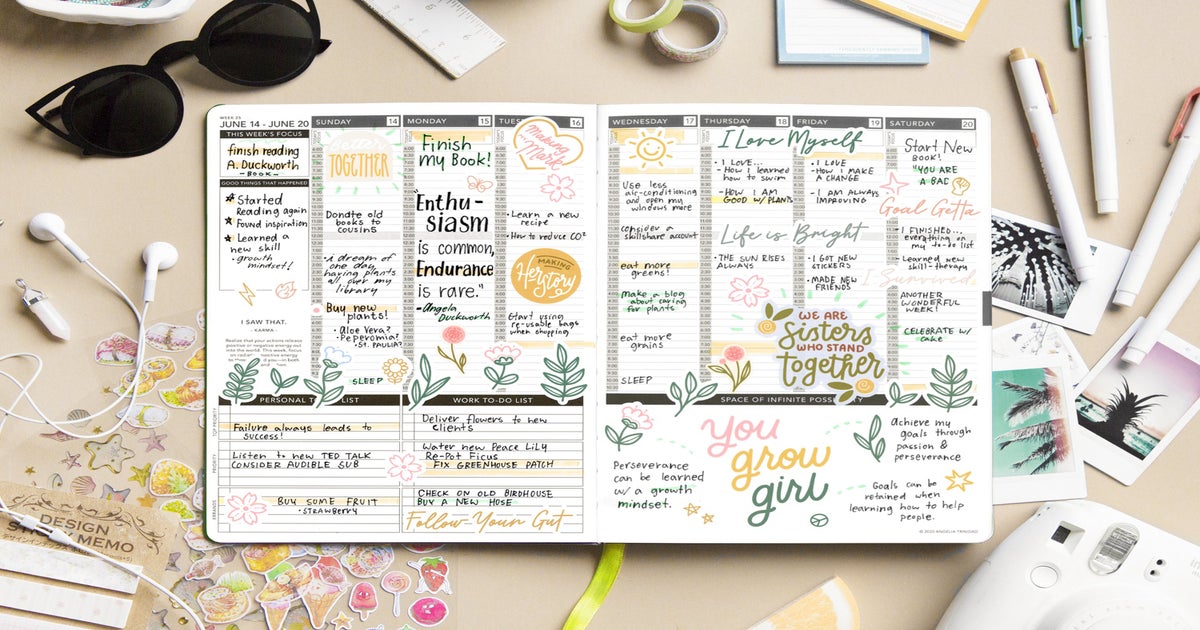 WEEK 25
JUNE 14 - JUNE 20
THIS WEEK'S FOCUS
finish reading
A. Duckworth
- BOOK -
GOOD THINGS THAT HAPPENED
Started
Reading again
Found inspiration
Learned a
new skill
• growth
mindset!
I SAW THAT.
- KARMA -
Realize that your actions release
positive or negative energy
into the world. This week, focus
SUNDAY 14
Better
TOGETHER
Donate old
books to
cousins
• i dream of
one day
having plants
all over my
library
Buy new
plants!
• Aloe Vera?
• Peperomia?
• ST. PAULIA?
SLEEP
MONDAY 15
Finish
my Book!
"Enthu-
siasm
is common,
Endurance
is rare."
- Angela
Duckworth
TUESDAY 16
Making
My
Mark
• Learn a new
recipe
• How to reduce CO²
MAKING
Herstory
Start using
re-usable bags
when shopping
WEDNESDAY 17
Use less
air-conditioning
and open my
windows more
consider a
skillshare account
eat more
greens!
make a blog
about caring
for plants
eat more
grains
SLEEP
THURSDAY 18
FRIDAY 19
I Love Myself
- I LOVE...
- How I learned
how to swim
- HOW I AM
GOOD W/ PLANTS
• I LOVE
- HOW I MAKE
A CHANGE
- I AM ALWAYS
IMPROVING
Life is Bright
• THE SUN RISES
ALWAYS
• I GOT NEW
STICKERS
• MADE NEW
FRIENDS
WE ARE
Sisters
WHO STAND
together
SATURDAY 20
Start New
BOOK!
"YOU ARE
A BAD
Goal Getta
• I FINISHED...
everything on
my to-do list
Learned new
skill - therapy
I Survived
ANOTHER
WONDERFUL
WEEK!
CELEBRATE W/
cake
PERSONAL TO LIST
TOP PRIORITY
Failure always leads to
success!
PRIORITY
Listen to new TED TALK
CONSIDER AUDIBLE SUB
ERRANDS
BUY SOME FRUIT
• STRAWBERRY
WORK TO-DO LIST
Deliver flowers to new
clients
Water new Peace Lily
Re-Pot Ficus
FIX GREENHOUSE PATCH
CHECK ON OLD BIRDHOUSE
BUY A NEW HOSE
Follow Your Gut
SPACE OF INFINITE POSSIBILITY
Perseverance
can be learned
w/ a growth
mindset.
you
grow
girl
achieve my
goals through
passion &
perseverance
Goals can be
retained when
learning how to help
people.
© 2020 ANGELIA TRINIDAD
DESIGN
STICKY MEMO